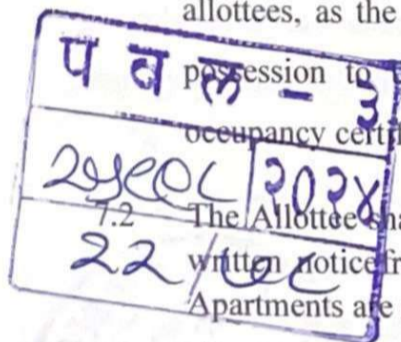 allottees, as the
प व ल - ३
possession to
occupancy certif
२०२४
7.2 The Allottee sha
written notice fr
२२/
Apartments are